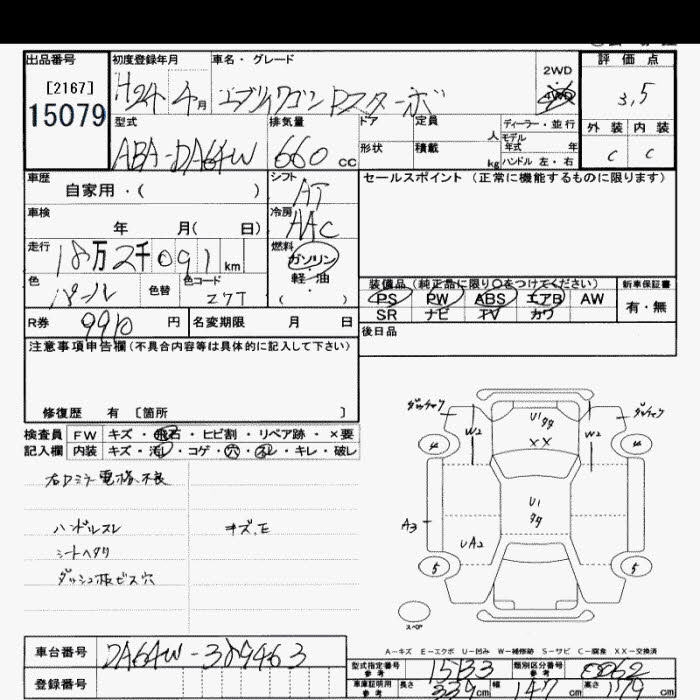 出品番号
[2167]
15079
初度登録年月
H24年 4月
車名・グレード
エブリイワゴン PZターボ
2WD
4WD
評価点
3.5
型式
ABA-DA64W
排気量
660 cc
ドア
定員
人
ディーラー・並行
モデル
年式 年
形状
積載
kg
ハンドル 左・右
外装 内装
C C
車歴
自家用・( )
シフト
AT
セールスポイント (正常に機能するものに限ります)
車検
年 月( 日)
冷房
AAC
走行
18万2千091km
燃料
ガソリン
軽・油
( )
色
パール
色替
色コード
Z7T
装備品(純正品に限り〇をつけてください)
新車保証書
PS PW ABS エアB AW
SR ナビ TV カワ
有・無
R券 9910 円
名変期限 月 日
後日品
注意事項申告欄(不具合内容等は具体的に記入して下さい)
修復歴 有 〔箇所 〕
検査員
記入欄
FW キズ・飛石・ヒビ割・リペア跡・×要
内装 キズ・汚レ・コゲ・穴・スレ・キレ・破レ
右Dミラー電格不良
ハンドルスレ
キズ.E
シートヘタリ
ダッシュ板ビス穴
W2
U1
XX
W2
4
4
U1
A3
UA2
5
5
スペア
A-キズ E-エクボ U-凹み W-補修跡 S-サビ C-腐食 XX-交換済
車台番号
DA64W-389463
登録番号
型式指定番号
参考
15133
類別区分番号
参考
0062
車庫証明用
参考
長さ 339cm
幅 147cm
高さ 179cm